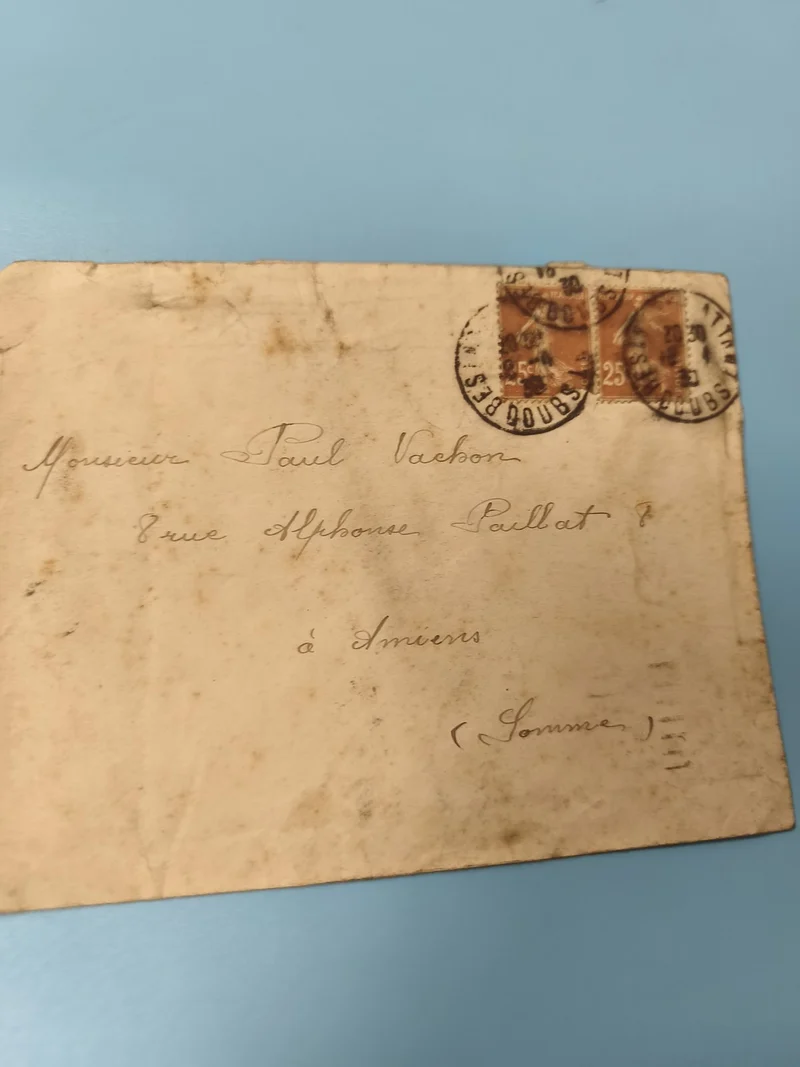 25c
25
DOUBS
DOUBS
Monsieur Paul Vachon
8 rue Alphonse Paillat 8
à Amiens
(Somme)